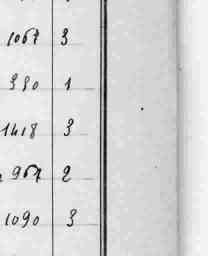 1067 3
380 1
1418 3
967 2
1090 3